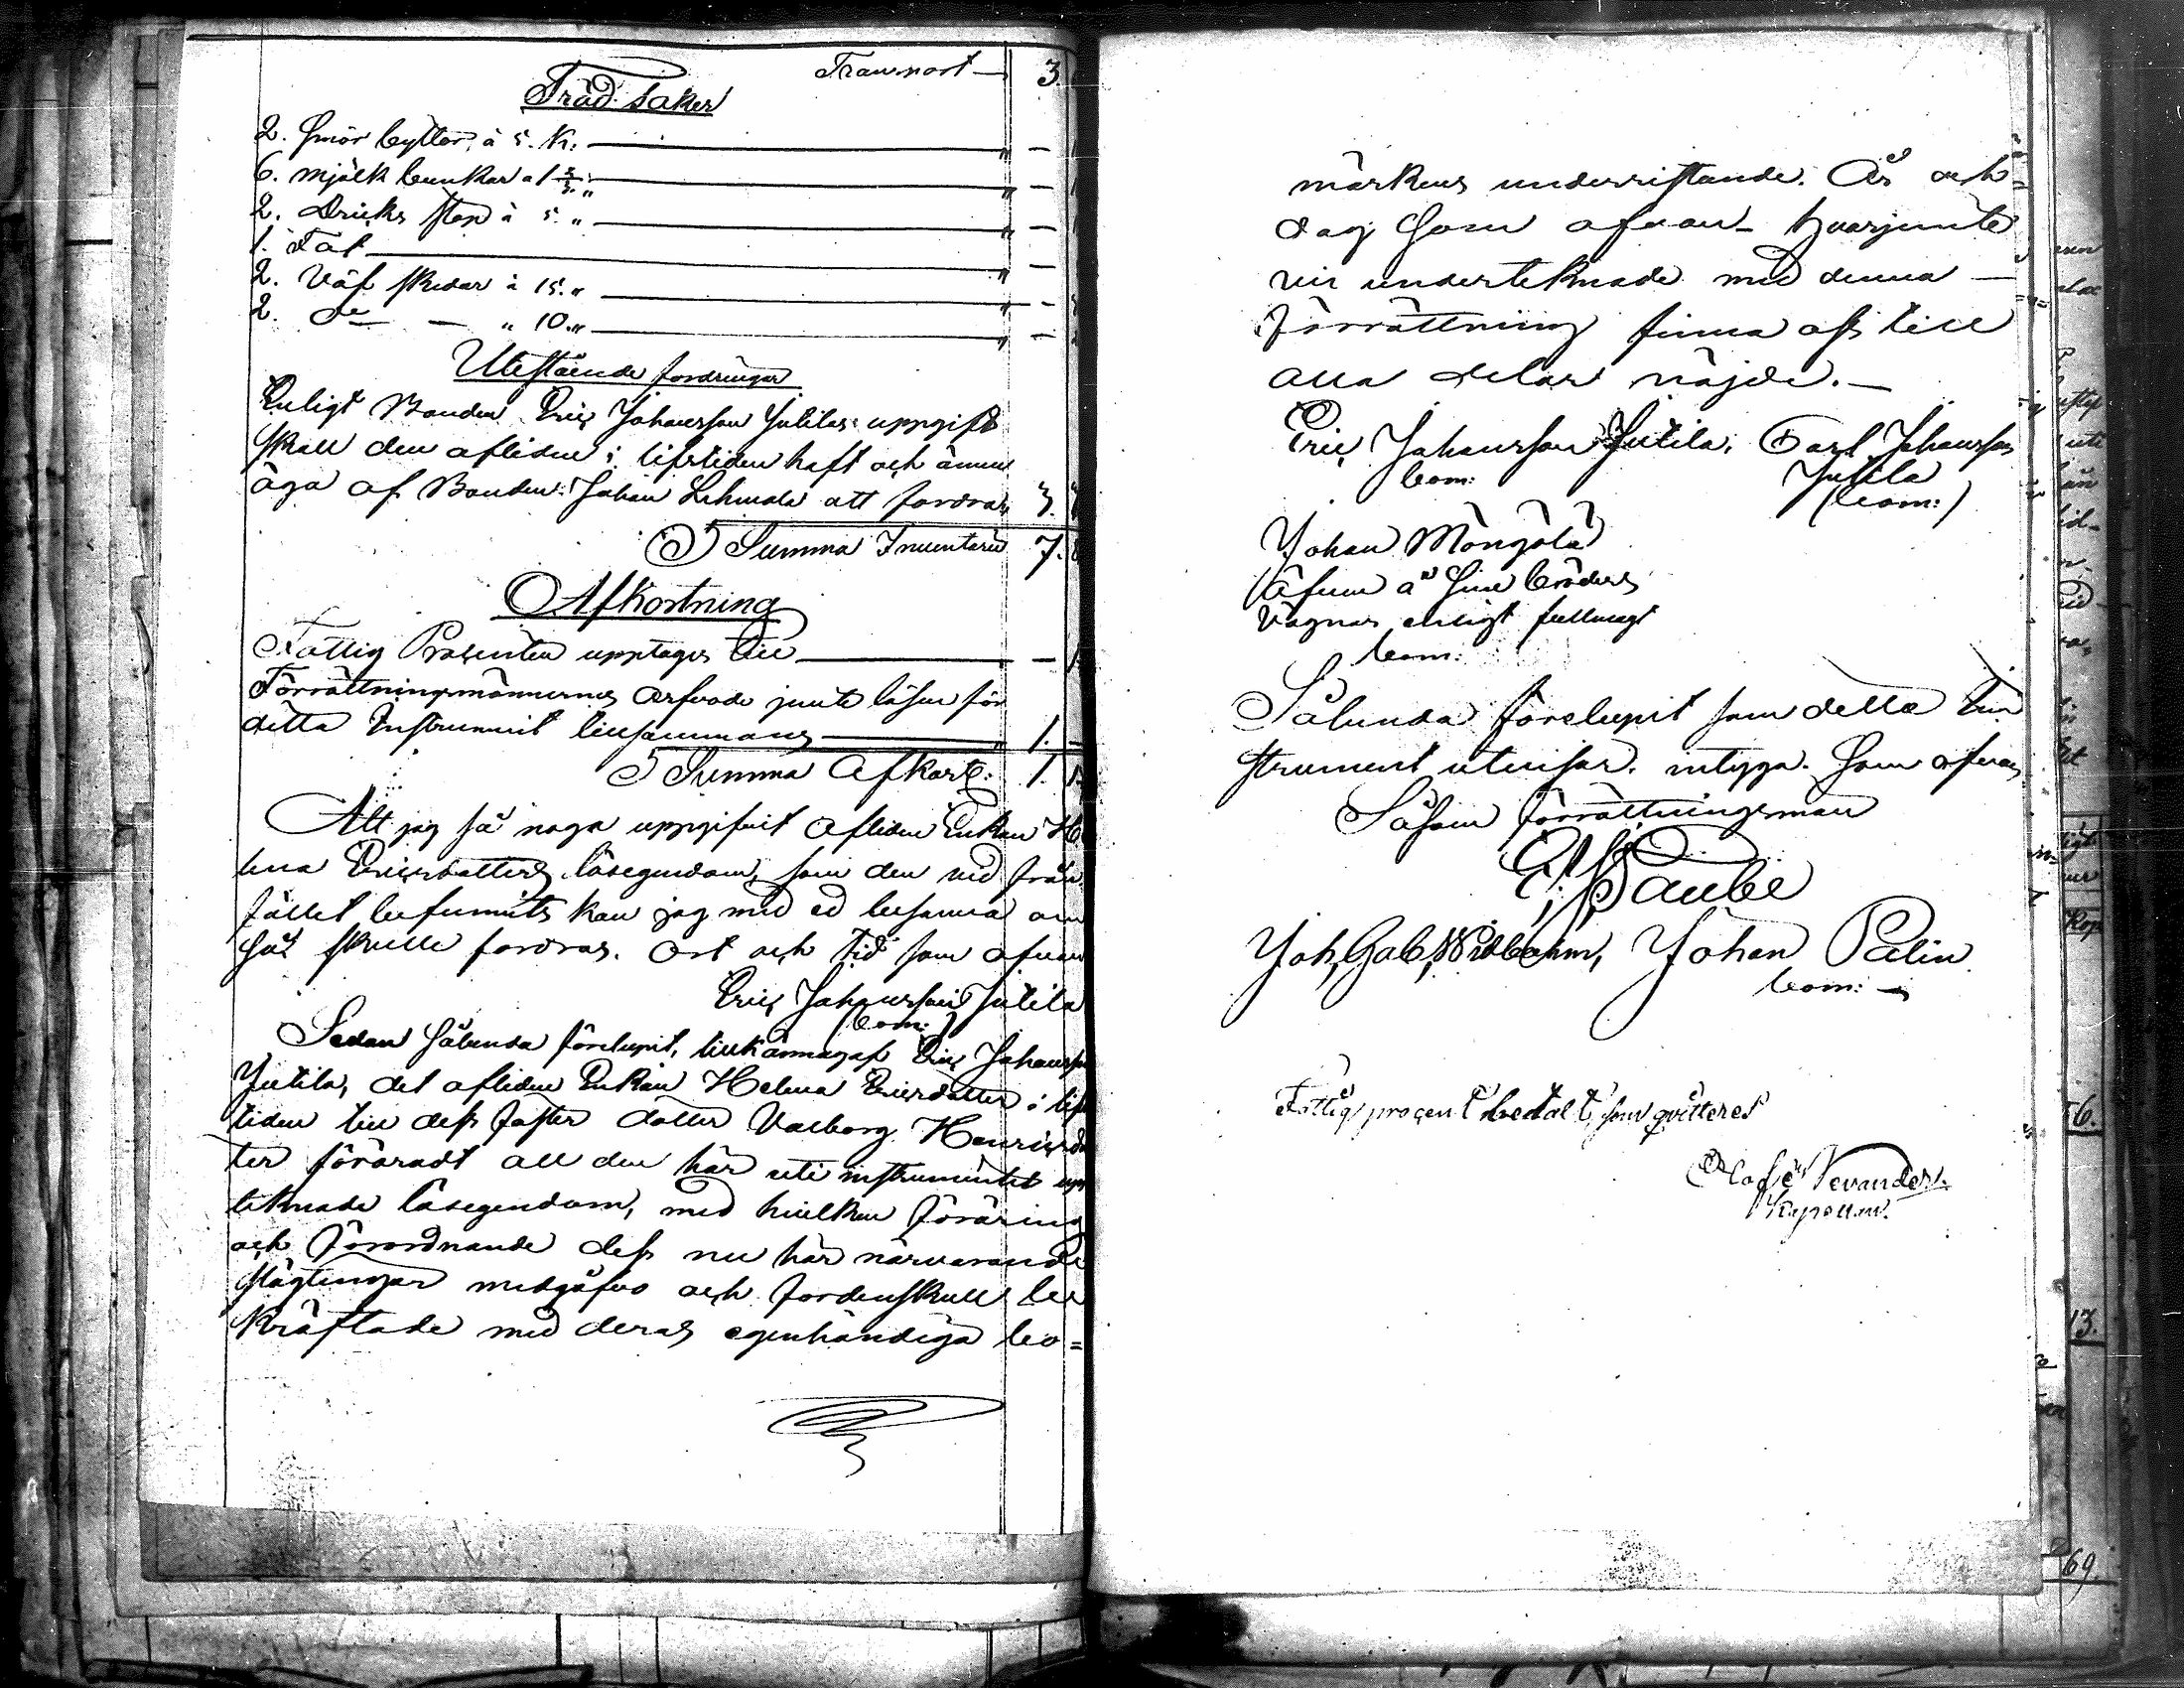 Transport — 3.
Träd saker
2. Smör byttor, à 5. K. — " —
6. mjölk bunkar a 1 2/3 " — " —
2. Dricks stop à 5. " — " —
1. Fat — " —
2. Väf skedar à 15. " — " —
2. Do — " 10. " — " —
Utestående fordringar
Enligt Bonden Eric Johansson Jutilas uppgift
skall den aflidne i lifstiden haft och ännu
äga af Bonden Johan Lehmola att fordra, 3.
Summa Inventarii 7.
Afkortning
Fattig Procenten upptages till — —
Förrättningsmännernes arfvode jemte lösen för
detta Instrument tillsammans — " 1. —
Summa Afkort: 1.
Att jag så noga uppgifvit aflidne Enkan He
lena Ericsdotters lösegendom, som den vid från
fället befunnits kan jag med ed besanna om
så skulle fordras. Ort och tid som ofvan
Eric Johansson Jutila
(bom:)
Sedan sålunda förelupit, tillkännagaf Eric Johansson
Jutila, det aflidne Enkan Helena Ericsdotter i lifs
tiden till dess faster dotter Valborg Henricsdot
ter föräradt all den här uti instrumentet upp
teknade lösegendom, med hvilken föräring
och förordnande dess nu här närvarande
slägtingar medgåfvo och fordenskull be
kräftade med deras egenhändiga bo=
märkens underristande. År och
dag som ofvan — hvarjemte
vi undertecknade med denna —
förrättning finna oss till
alla delar nöjde. —
Eric Johansson Jutila, Carl Johansson
bom: Jutila
(bom:)
Johan Mångåla
äfven å sine bröders
vägnar enligt fullmagt
bom:
Sålunda förelupit som detta In
strument utvisar. intyga. Som ofvan
Såsom förrättningsman
E. Daube
Joh, Gab, Widbohm, Johan Palin
bom: —
Fattig procent betalt, som qvitteres
Olof Levander.
Kapellan.
6.
13.
69